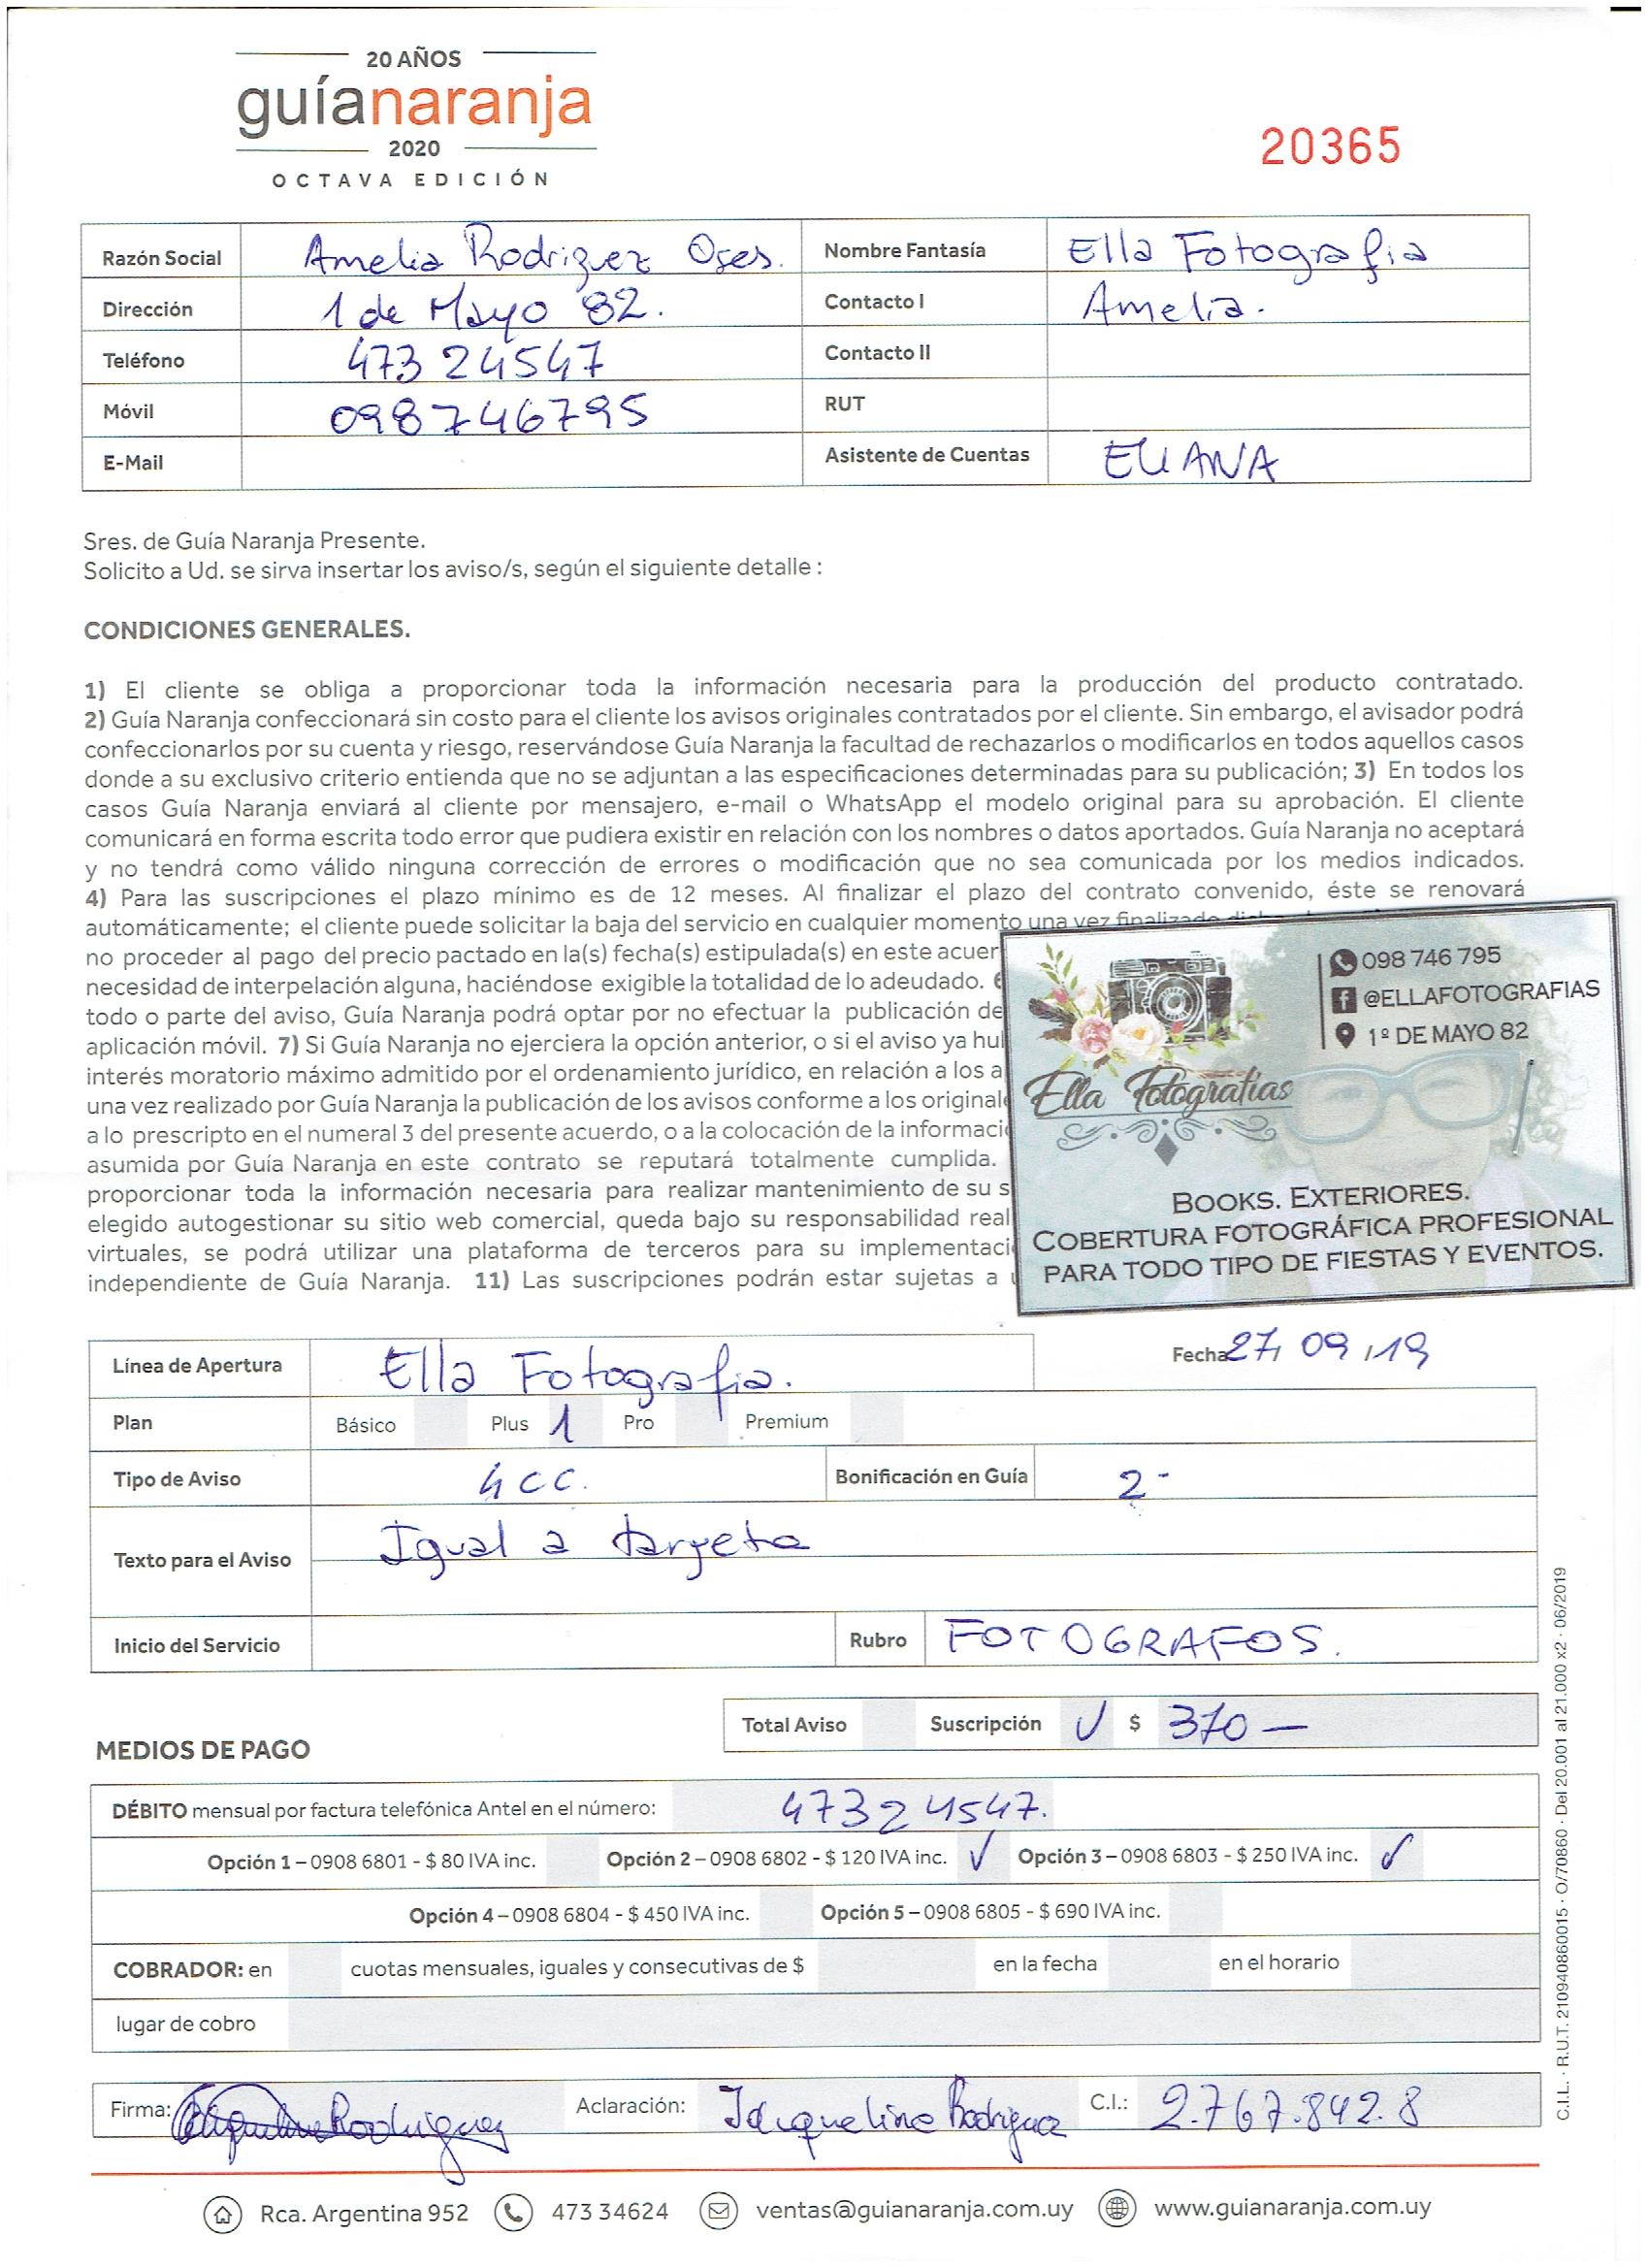 20 AÑOS
guíanaranja
2020
OCTAVA EDICIÓN
20365
Razón Social Amelia Rodriguez Oses. Nombre Fantasía Ella Fotografia
Dirección 1 de Mayo 82. Contacto I Amelia.
Teléfono 473 24547 Contacto II
Móvil 098746795 RUT
E-Mail Asistente de Cuentas ELIANA
Sres. de Guía Naranja Presente.
Solicito a Ud. se sirva insertar los aviso/s, según el siguiente detalle :
CONDICIONES GENERALES.
1) El cliente se obliga a proporcionar toda la información necesaria para la producción del producto contratado.
2) Guía Naranja confeccionará sin costo para el cliente los avisos originales contratados por el cliente. Sin embargo, el avisador podrá
confeccionarlos por su cuenta y riesgo, reservándose Guía Naranja la facultad de rechazarlos o modificarlos en todos aquellos casos
donde a su exclusivo criterio entienda que no se adjuntan a las especificaciones determinadas para su publicación; 3) En todos los
casos Guía Naranja enviará al cliente por mensajero, e-mail o WhatsApp el modelo original para su aprobación. El cliente
comunicará en forma escrita todo error que pudiera existir en relación con los nombres o datos aportados. Guía Naranja no aceptará
y no tendrá como válido ninguna corrección de errores o modificación que no sea comunicada por los medios indicados.
4) Para las suscripciones el plazo mínimo es de 12 meses. Al finalizar el plazo del contrato convenido, éste se renovará
automáticamente; el cliente puede solicitar la baja del servicio en cualquier momento una vez finalizado
no proceder al pago del precio pactado en la(s) fecha(s) estipulada(s) en este acuer
necesidad de interpelación alguna, haciéndose exigible la totalidad de lo adeudado.
todo o parte del aviso, Guía Naranja podrá optar por no efectuar la publicación de
aplicación móvil. 7) Si Guía Naranja no ejerciera la opción anterior, o si el aviso ya hu
interés moratorio máximo admitido por el ordenamiento jurídico, en relación a los a
una vez realizado por Guía Naranja la publicación de los avisos conforme a los original
a lo prescripto en el numeral 3 del presente acuerdo, o a la colocación de la informaci
asumida por Guía Naranja en este contrato se reputará totalmente cumplida.
proporcionar toda la información necesaria para realizar mantenimiento de su s
elegido autogestionar su sitio web comercial, queda bajo su responsabilidad real
virtuales, se podrá utilizar una plataforma de terceros para su implementaci
independiente de Guía Naranja. 11) Las suscripciones podrán estar sujetas a
098 746 795
@ELLAFOTOGRAFIAS
1º DE MAYO 82
Ella Fotografías
BOOKS. EXTERIORES.
COBERTURA FOTOGRÁFICA PROFESIONAL
PARA TODO TIPO DE FIESTAS Y EVENTOS.
Línea de Apertura Ella Fotografia. Fecha 27, 09, 19
Plan Básico Plus 1 Pro Premium
Tipo de Aviso 4CC. Bonificación en Guía 2-
Texto para el Aviso Igual a tarjeta
Inicio del Servicio Rubro FOTOGRAFOS.
Total Aviso Suscripción ✓ $ 370 —
MEDIOS DE PAGO
DÉBITO mensual por factura telefónica Antel en el número: 47324547.
Opción 1 – 0908 6801 - $ 80 IVA inc. Opción 2 – 0908 6802 - $ 120 IVA inc. ✓ Opción 3 – 0908 6803 - $ 250 IVA inc. ✓
Opción 4 – 0908 6804 - $ 450 IVA inc. Opción 5 – 0908 6805 - $ 690 IVA inc.
COBRADOR: en cuotas mensuales, iguales y consecutivas de $ en la fecha en el horario
lugar de cobro
Firma: Rodriguez Aclaración: Jacqueline Rodriguez C.I.: 2.767.842.8
Rca. Argentina 952 473 34624 ventas@guianaranja.com.uy www.guianaranja.com.uy
C.I.L. · R.U.T. 210940860015 · O/70860 · Del 20.001 al 21.000 x2 · 06/2019